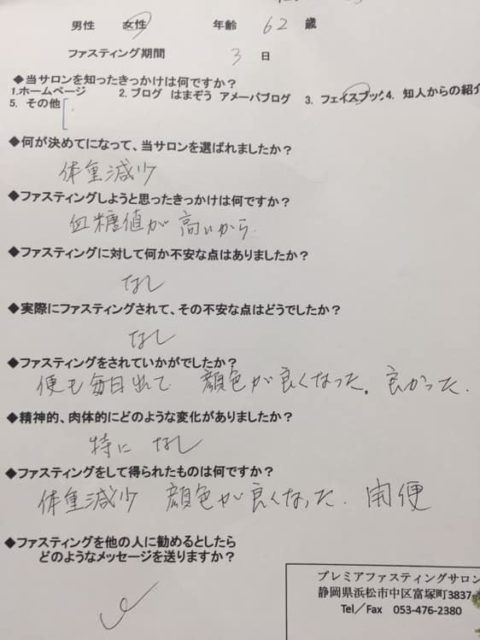 男性 女性 年齢 62 歳
ファスティング期間 3 日
◆当サロンを知ったきっかけは何ですか？
1.ホームページ 2.ブログ はまぞう アメーバブログ 3. フェイスブック 4. 知人からの紹介
5. その他［
◆何が決めてになって、当サロンを選ばれましたか？
体重減少
◆ファスティングしようと思ったきっかけは何ですか？
血糖値が高いから
◆ファスティングに対して何か不安な点はありましたか？
なし
◆実際にファスティングされて、その不安な点はどうでしたか？
なし
◆ファスティングをされていかがでしたか？
便も毎日出て 顔色が良くなった。良かった.
◆精神的、肉体的にどのような変化がありましたか？
特に なし
◆ファスティングをして得られたものは何ですか？
体重減少 顔色が良くなった. 用便
◆ファスティングを他の人に勧めるとしたら
どのようなメッセージを送りますか？
プレミアファスティングサロン
静岡県浜松市中区富塚町3837-
Tel／Fax 053-476-2380